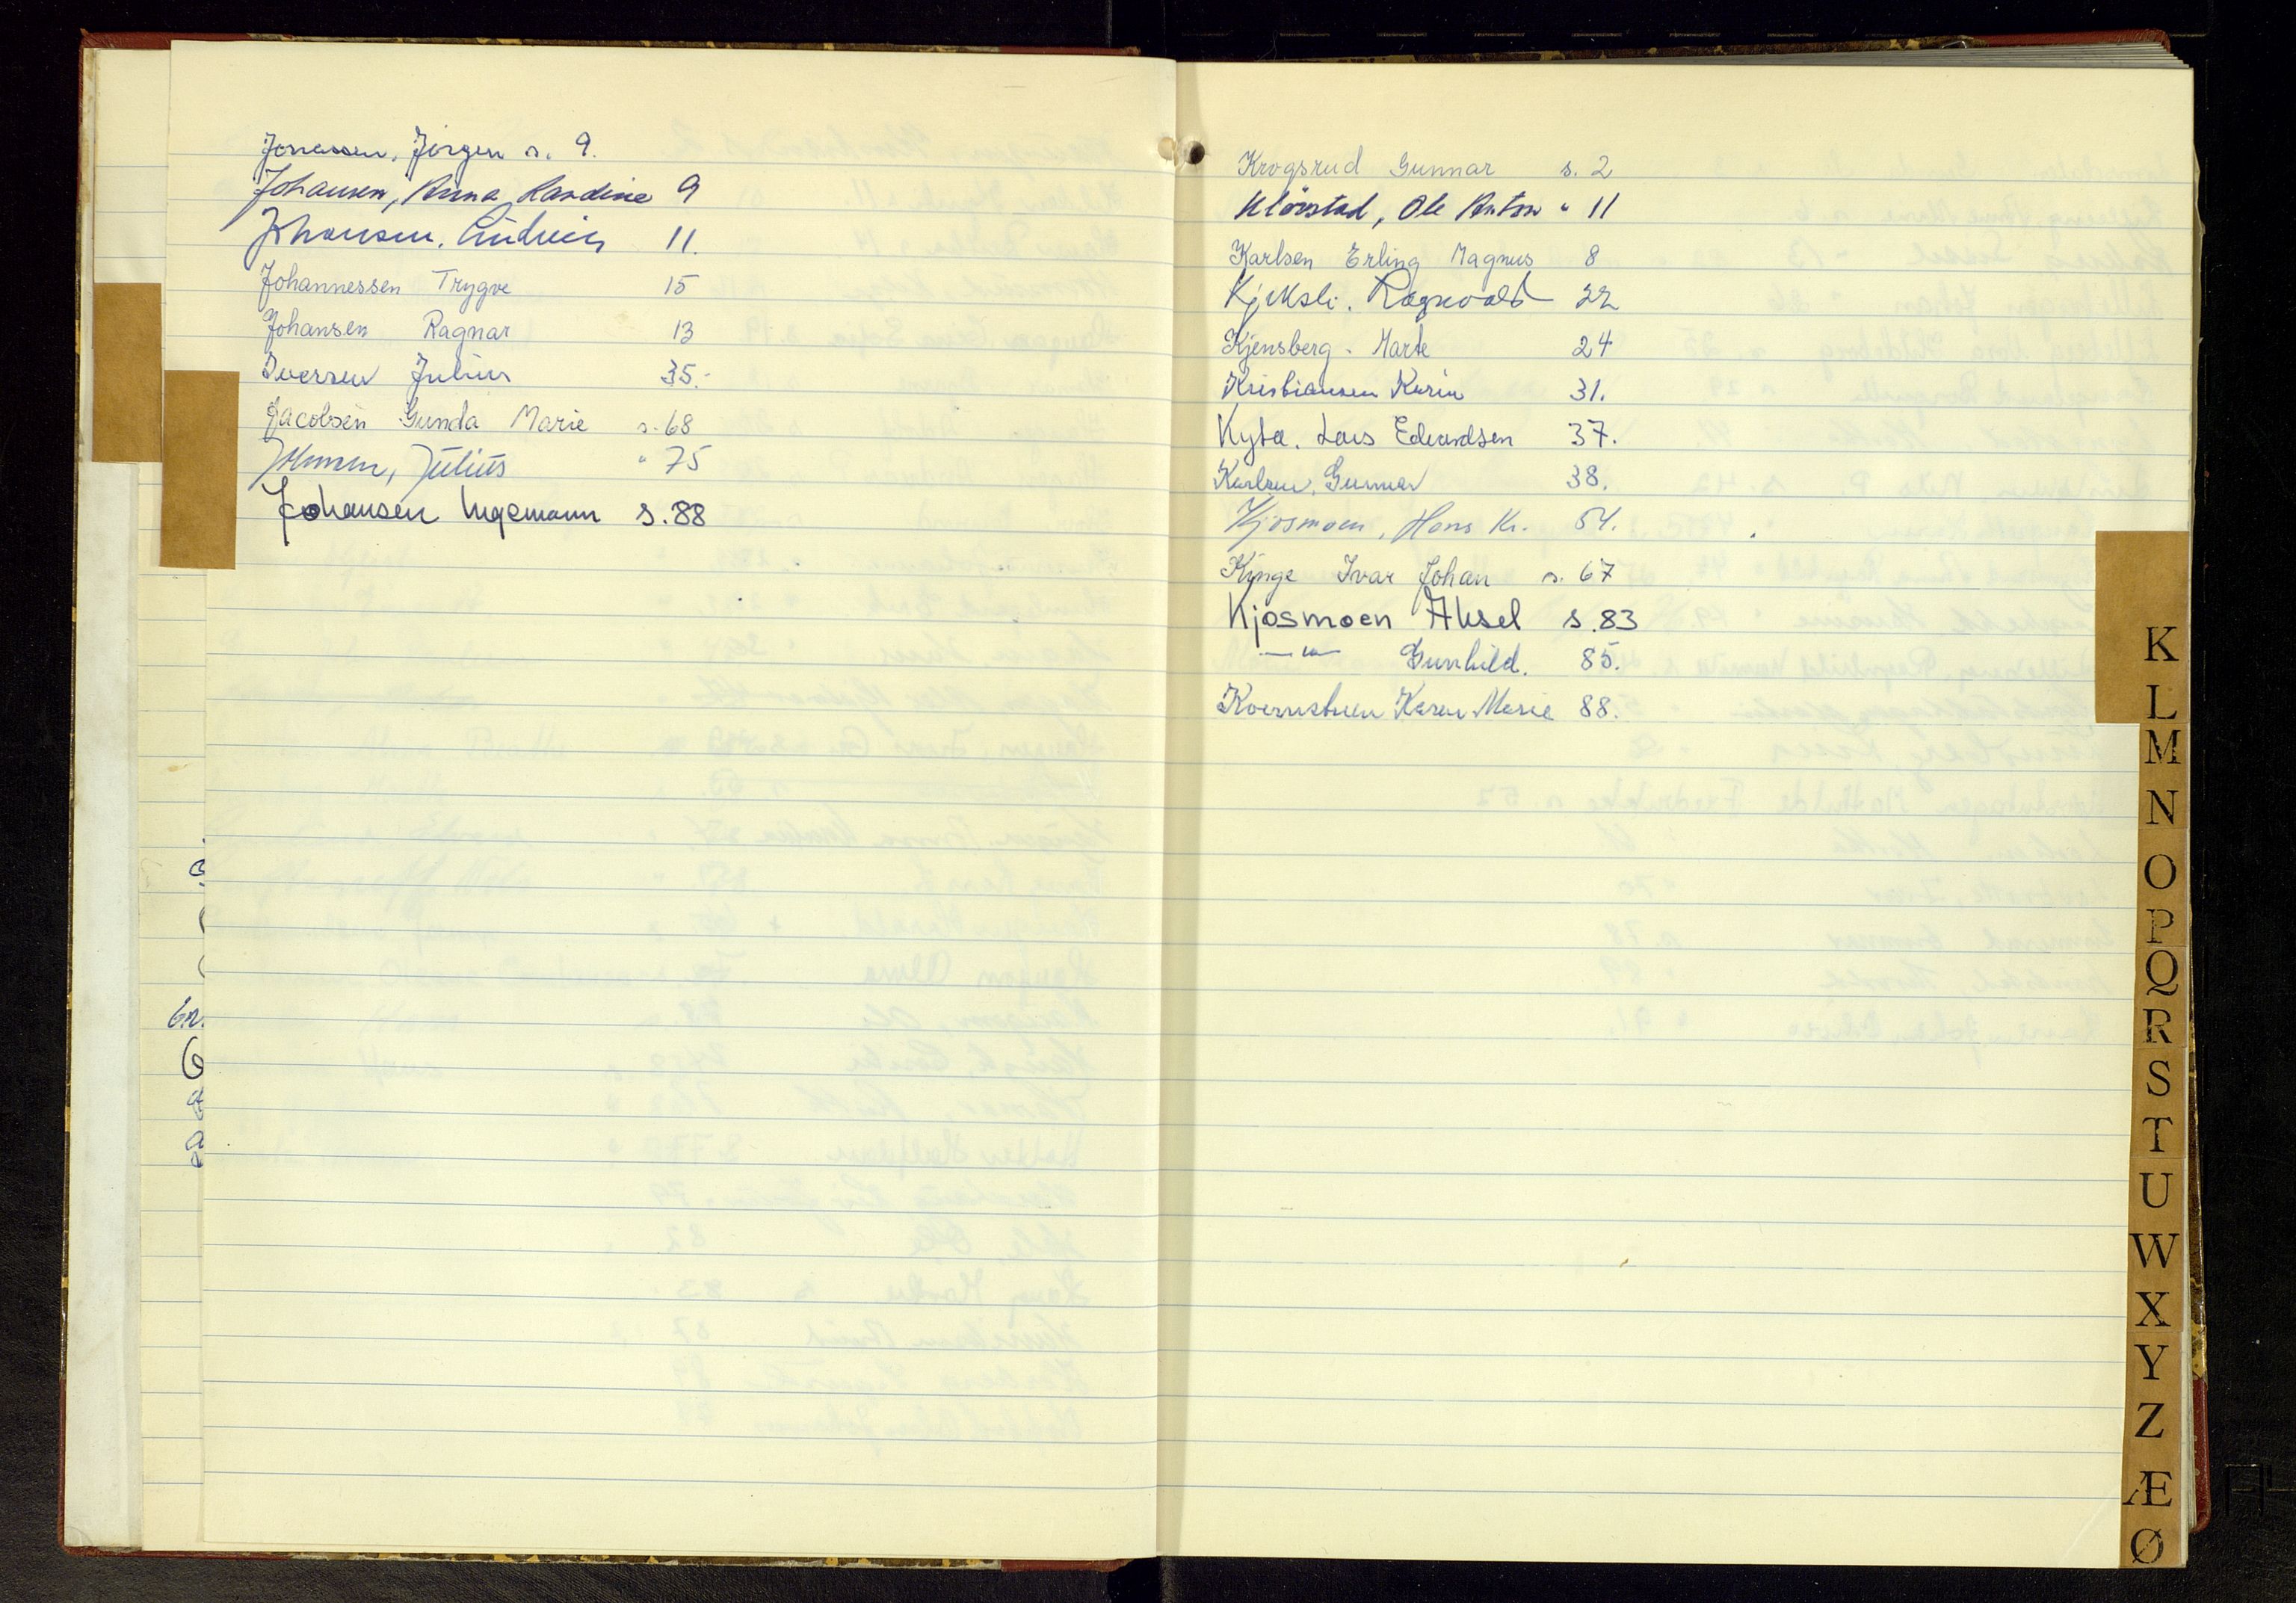 Jonassen, Jörgen s. 9.
Johansen, Anna Hardine 9
Johansen, 11.
Johannessen Trygve 15
Johansen Ragnar 13
Iversen Julius 35.-
Jacobsen Gunda Marie s. 68
Julius " 75
Johansen Ingemann s. 88
Krogsrud Gunnar s. 2
Klörstad, Ole Anton " 11
Karlsen Erling Magnus 8
Kjeksli. Ragnvald 22
Kjensberg - Marte 24
Kristiansen Karin 31.
Kyta. Lars Edvardsen 37.
Karlsen, Gunnar 38.
Kjosmoen, Hans Kr. 54.
Kynge Ivar Johan s. 67
Kjosmoen Aksel s. 83
—"— Gunhild. 85.
Kvernstuen Karen Marie 88.
K
L
M
N
O
P
Q
R
S
T
U
W
X
Y
Z
Æ
Ø